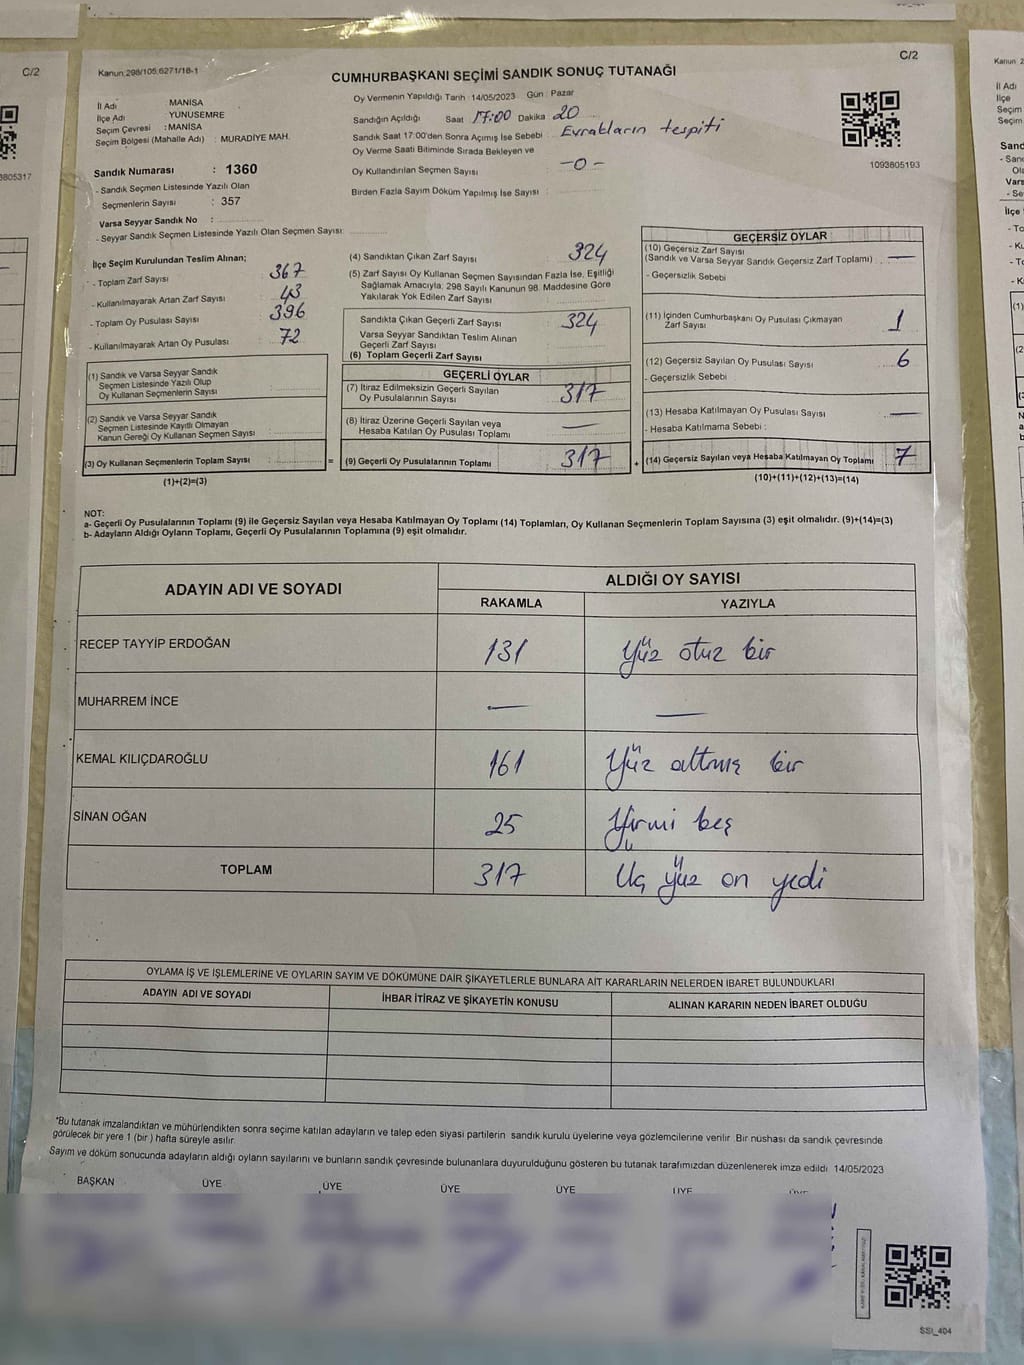 C/2
C/2
Kanun:298/105;6271/18-1
CUMHURBAŞKANI SEÇİMİ SANDIK SONUÇ TUTANAĞI
İl Adı MANİSA
İlçe Adı YUNUSEMRE
Seçim Çevresi : MANİSA
Seçim Bölgesi (Mahalle Adı) : MURADİYE MAH.
Oy Vermenin Yapıldığı Tarih 14/05/2023 Gün : Pazar
Sandığın Açıldığı Saat 17:00 Dakika 20
Sandık Saat 17:00'den Sonra Açımış İse Sebebi Evrakların tespiti
Oy Verme Saati Bitiminde Sırada Bekleyen ve
Oy Kullandırılan Seçmen Sayısı —0—
Birden Fazla Sayım Döküm Yapılmış İse Sayısı :
1093805193
3805317
Sandık Numarası : 1360
- Sandık Seçmen Listesinde Yazılı Olan
Seçmenlerin Sayısı : 357
Varsa Seyyar Sandık No :
- Seyyar Sandık Seçmen Listesinde Yazılı Olan Seçmen Sayısı:
İlçe Seçim Kurulundan Teslim Alınan;
- Toplam Zarf Sayısı : 367
- Kullanılmayarak Artan Zarf Sayısı : 43
- Toplam Oy Pusulası Sayısı : 396
- Kullanılmayarak Artan Oy Pusulası : 72
(1) Sandık ve Varsa Seyyar Sandık
Seçmen Listesinde Yazılı Olup
Oy Kullanan Seçmenlerin Sayısı
(2) Sandık ve Varsa Seyyar Sandık
Seçmen Listesinde Kayıtlı Olmayan
Kanun Gereği Oy Kullanan Seçmen Sayısı
(3) Oy Kullanan Seçmenlerin Toplam Sayısı
(1)+(2)=(3)
(4) Sandıktan Çıkan Zarf Sayısı 324
(5) Zarf Sayısı Oy Kullanan Seçmen Sayısından Fazla İse, Eşitliği
Sağlamak Amacıyla; 298 Sayılı Kanunun 98. Maddesine Göre
Yakılarak Yok Edilen Zarf Sayısı
Sandıkta Çıkan Geçerli Zarf Sayısı 324
Varsa Seyyar Sandıktan Teslim Alınan
Geçerli Zarf Sayısı
(6) Toplam Geçerli Zarf Sayısı
GEÇERLİ OYLAR
(7) İtiraz Edilmeksizin Geçerli Sayılan
Oy Pusulalarının Sayısı 317
(8) İtiraz Üzerine Geçerli Sayılan veya
Hesaba Katılan Oy Pusulası Toplamı —
= (9) Geçerli Oy Pusulalarının Toplamı 317
GEÇERSİZ OYLAR
(10) Geçersiz Zarf Sayısı
(Sandık ve Varsa Seyyar Sandık Geçersiz Zarf Toplamı) —
- Geçersizlik Sebebi
(11) İçinden Cumhurbaşkanı Oy Pusulası Çıkmayan
Zarf Sayısı 1
(12) Geçersiz Sayılan Oy Pusulası Sayısı 6
- Geçersizlik Sebebi
(13) Hesaba Katılmayan Oy Pusulası Sayısı —
- Hesaba Katılmama Sebebi :
+ (14) Geçersiz Sayılan veya Hesaba Katılmayan Oy Toplamı 7
(10)+(11)+(12)+(13)=(14)
NOT:
a- Geçerli Oy Pusulalarının Toplamı (9) ile Geçersiz Sayılan veya Hesaba Katılmayan Oy Toplamı (14) Toplamları, Oy Kullanan Seçmenlerin Toplam Sayısına (3) eşit olmalıdır. (9)+(14)=(3)
b- Adayların Aldığı Oyların Toplamı, Geçerli Oy Pusulalarının Toplamına (9) eşit olmalıdır.
ADAYIN ADI VE SOYADI ALDIĞI OY SAYISI
RAKAMLA YAZIYLA
RECEP TAYYİP ERDOĞAN 131 Yüz otuz bir
MUHARREM İNCE — —
KEMAL KILIÇDAROĞLU 161 Yüz altmış bir
SİNAN OĞAN 25 Yirmi beş
TOPLAM 317 Üç yüz on yedi
OYLAMA İŞ VE İŞLEMLERİNE VE OYLARIN SAYIM VE DÖKÜMÜNE DAİR ŞİKAYETLERLE BUNLARA AİT KARARLARIN NELERDEN İBARET BULUNDUKLARI
ADAYIN ADI VE SOYADI İHBAR İTİRAZ VE ŞİKAYETİN KONUSU ALINAN KARARIN NEDEN İBARET OLDUĞU
*Bu tutanak imzalandıktan ve mühürlendikten sonra seçime katılan adayların ve talep eden siyasi partilerin sandık kurulu üyelerine veya gözlemcilerine verilir. Bir nüshası da sandık çevresinde
görülecek bir yere 1 (bir) hafta süreyle asılır.
Sayım ve döküm sonucunda adayların aldığı oyların sayılarını ve bunların sandık çevresinde bulunanlara duyurulduğunu gösteren bu tutanak tarafımızdan düzenlenerek imza edildi 14/05/2023
BAŞKAN ÜYE ÜYE ÜYE ÜYE ÜYE ÜYE
SSI_404